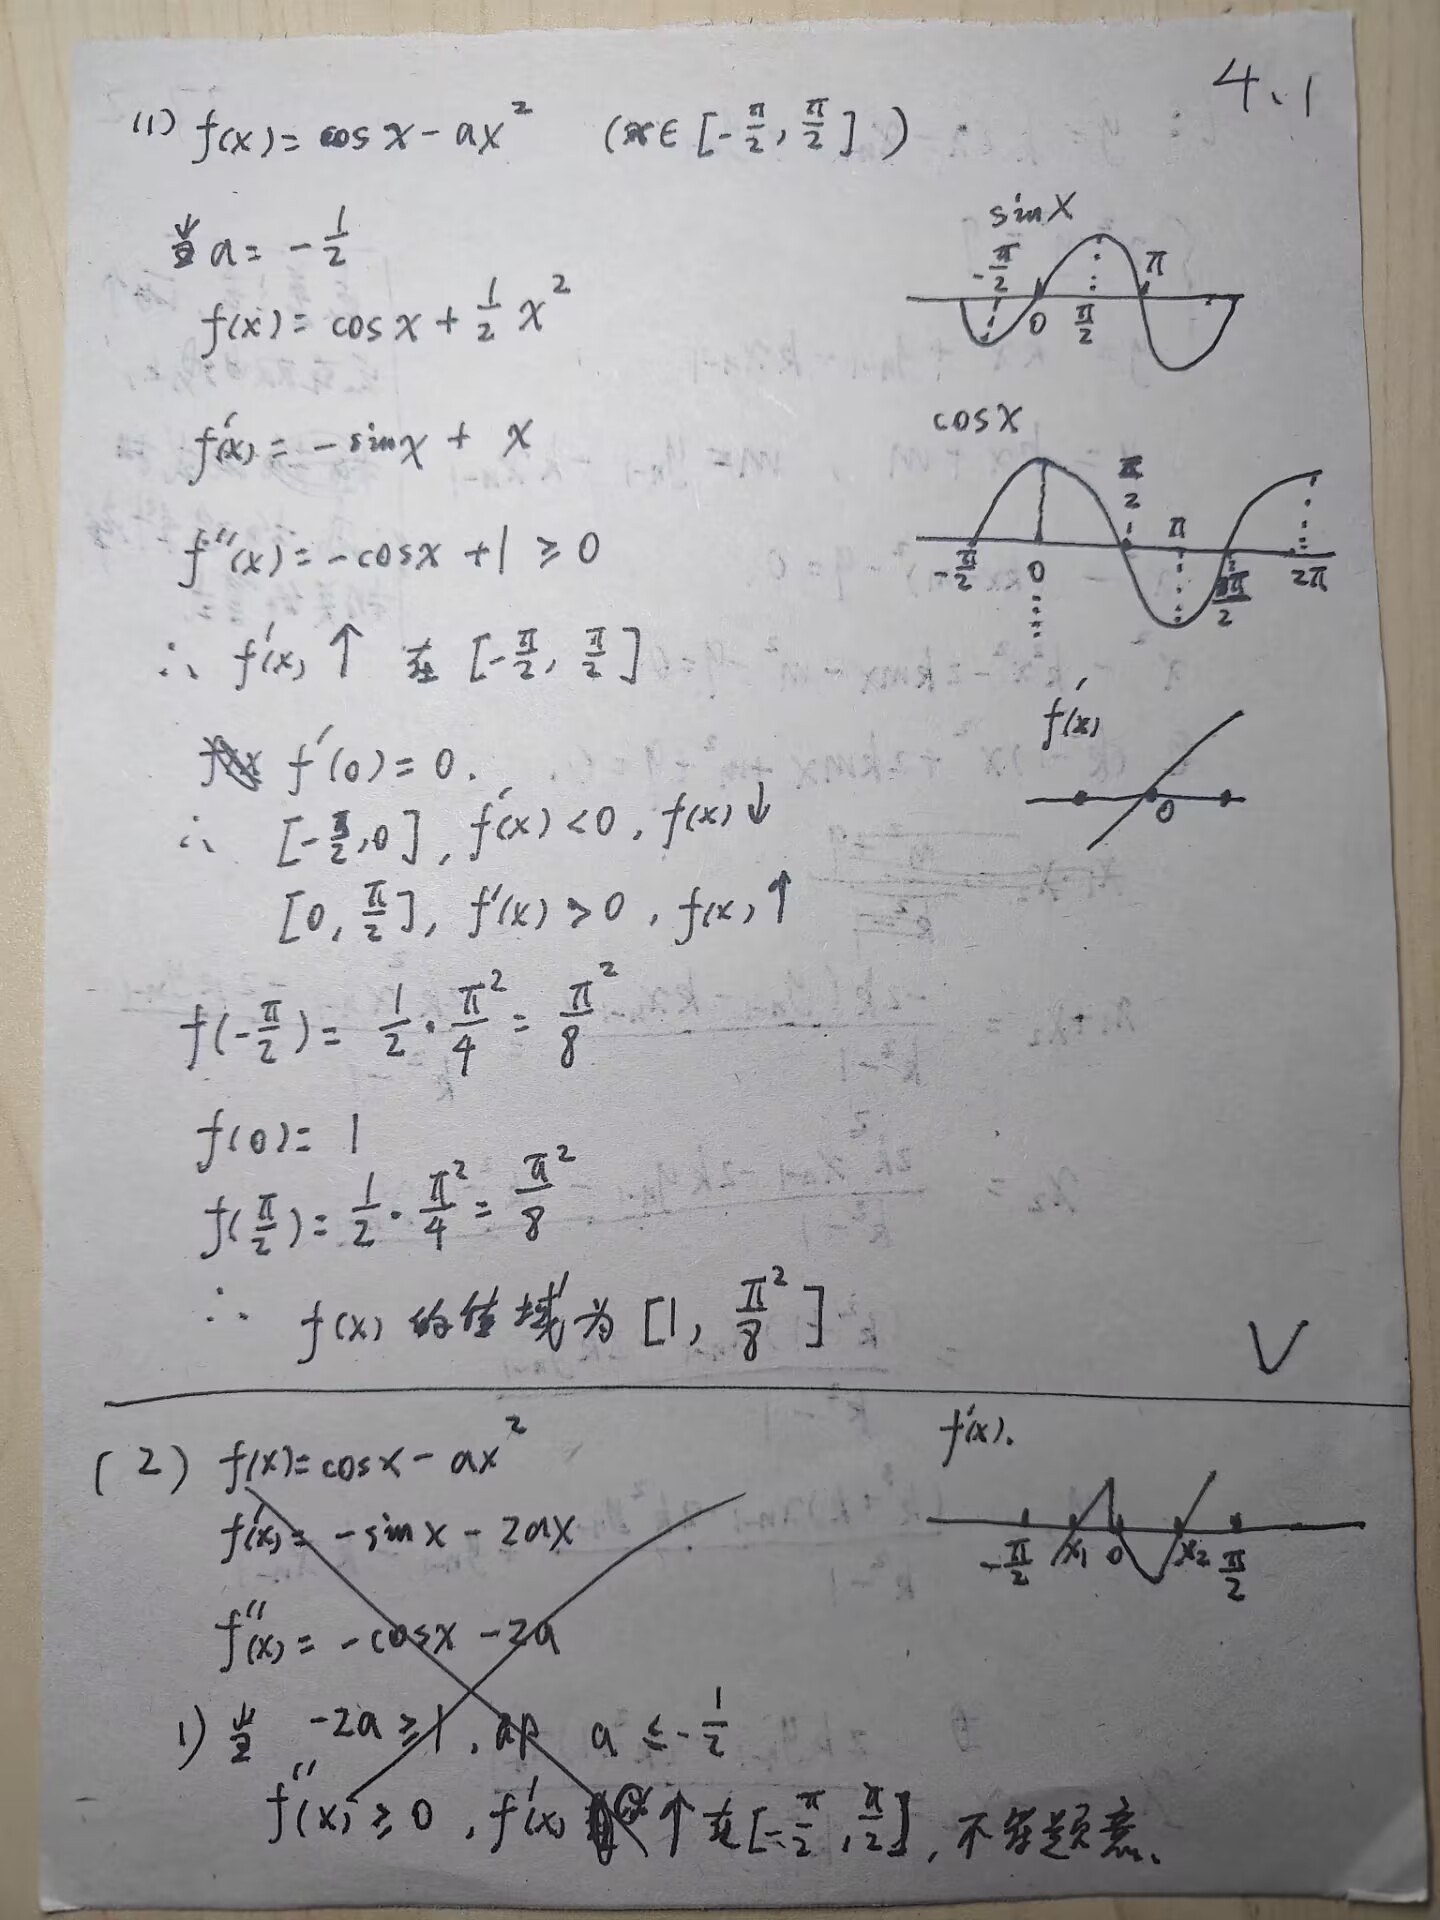 4.1
(1) f(x)=cosx-ax² (x∈[-π/2,π/2])
当a=-1/2
f(x)=cosx+1/2x²
f'(x)=-sinx+x
f''(x)=-cosx+1≥0
∴ f'(x)↑ 在[-π/2,π/2]
f'(0)=0.
∴ [-π/2,0],f'(x)<0,f(x)↓
[0,π/2],f'(x)>0,f(x)↑
f(-π/2)=1/2·π²/4=π²/8
f(0)=1
f(π/2)=1/2·π²/4=π²/8
∴ f(x)的值域为[1,π²/8]
sinx
-π/2 0 π/2 π
cosx
-π/2 0 π/2 π 3π/2 2π
f'(x)
0
(2) f(x)=cosx-ax²
f'(x)=-sinx-2ax
f''(x)=-cosx-2a
1) 当 -2a≥1,即 a≤-1/2
f''(x)≥0,f'(x)↑在[-π/2,π/2],不符题意.
f'(x).
-π/2 x₁ 0 x₂ π/2